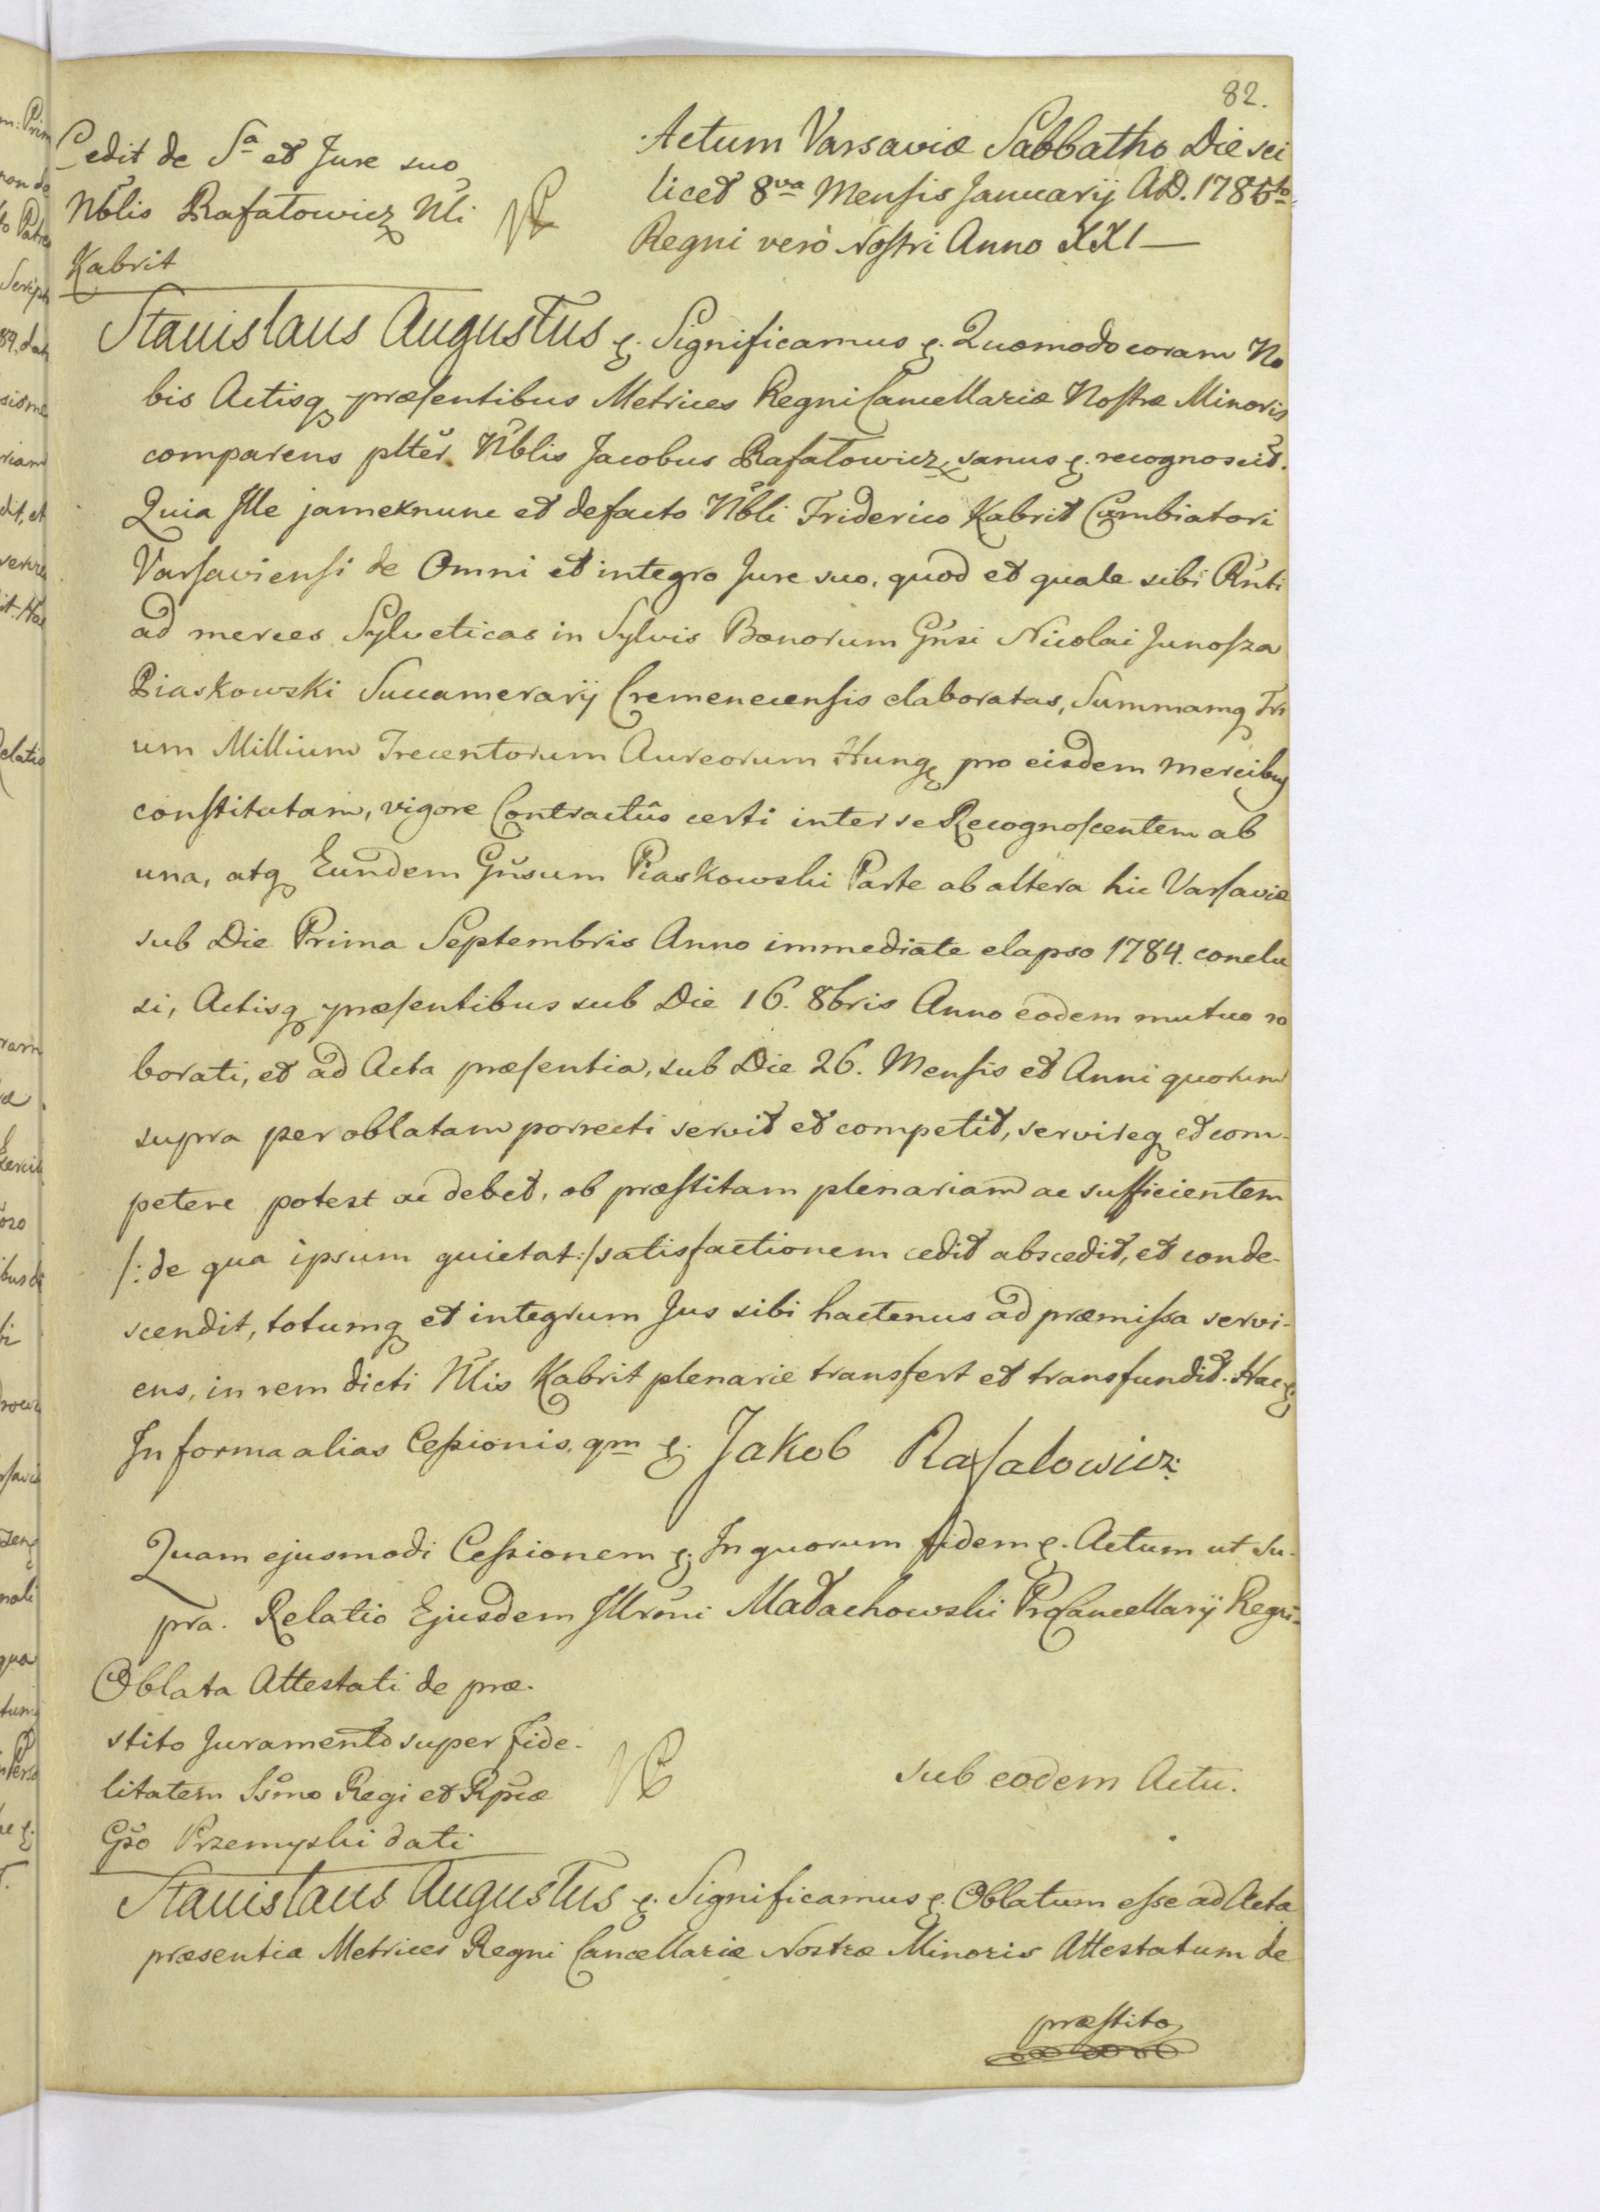 82.
Cedit de Sa et Jure suo
Nblis Rafałowicz Nli
Kabrit
Actum Varsaviæ Sabbatho Die sci
licet 8va Mensis Januarij AD. 1785to
Regni verò Nostri Anno XXI—
Stanislaus Augustus &. Significamus &. Quomodo coram No
bis Actisq præsentibus Metrices Regni Cancellariæ Nostræ Minoris
comparens plter Nblis Jacobus Rafałowicz, sanus &. recognoscit.
Quia Ille jam ex nunc et de facto Nbli Friderico Kabrit Cambiatori
Varsaviensi de Omni et integro Jure suo, quod et quale sibi Rnti
ad merces Sylveticas in Sylvis Bonorum Gnsi Nicolai Junosza
Piaskowski Succamerarij Cremenecensis elaboratas, Summamq Tri
um Millium Trecentorum Aureorum Hung pro eisdem mercibus
constitutam, vigore Contractûs certi inter se Recognoscentem ab
una, atq Eundem Gnsum Piaskowski Parte ab altera hic Varsaviæ
sub Die Prima Septembris Anno immediate elapso 1784. conclu
si, Actisq præsentibus sub Die 16. 8bris Anno eodem mutuo ro
borati, et ad Acta præsentia, sub Die 26. Mensis et Anni quorum
supra per oblatam porrecti servit et competit, servireq et com-
petere potest ac debet, ob præstitam plenariam ac sufficientem
/: de qua ipsum quietat :/ satisfactionem cedit abscedit, et conde-
scendit, totumq et integrum Jus sibi hactenus ad præmissa servi-
ens, in rem dicti Nlis Kabrit plenarie transfert et transfundit. Hac &.
In forma alias Cessionis, qm &. Jakob Rafałowicz:
Quam ejusmodi Cessionem &. In quorum fidem &. Actum ut Su-
pra. Relatio Ejusdem Illrmi Małachowski ProCancellarij Regni.
Oblata Attestati de præ-
stito Juramento super Fide-
litatem Ssmo Regi et Rpcæ
Gso Przemyski dati
sub eodem Actu.
Stanislaus Augustus &. Significamus &. Oblatum esse ad Acta
præsentia Metrices Regni Cancellariæ Nostræ Minoris Attestatum de
præstito